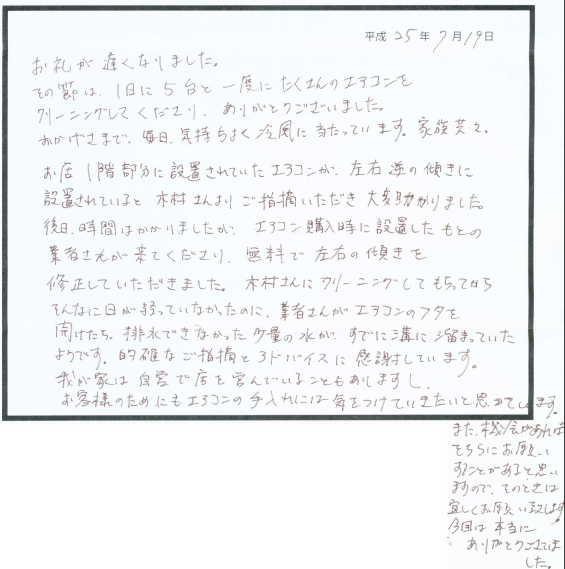 平成 25年 7月19日
お礼が遅くなりました。
その節は、1日に5台と一度にたくさんのエアコンを
クリーニングしてくださり、ありがとうございました。
おかげさまで、毎日、気持ちよく冷風に当たっています。家族共々。
お店1階部分に設置されていたエアコンが、左右逆の傾きに
設置されていると木村さんよりご指摘いただき大変助かりました。
後日、時間はかかりましたが、エアコン購入時に設置したもとの
業者さんが来てくださり、無料で左右の傾きを
修正していただきました。木村さんにクリーニングしてもらってから
そんなに日が経っていなかったのに、業者さんがエアコンのフタを
開けたら、排水できなかった少量の水が、すでに溝に溜まっていた
ようです。的確なご指摘とアドバイスに感謝しています。
我が家は自営で店を営んでいることもありますし、
お客様のためにもエアコンの手入れには気をつけていきたいと思っています。
また、機会があれば
そちらにお願い
することがあると思い
ますので、そのときは
宜しくお願い致します。
今回は本当に
ありがとうございま
した。